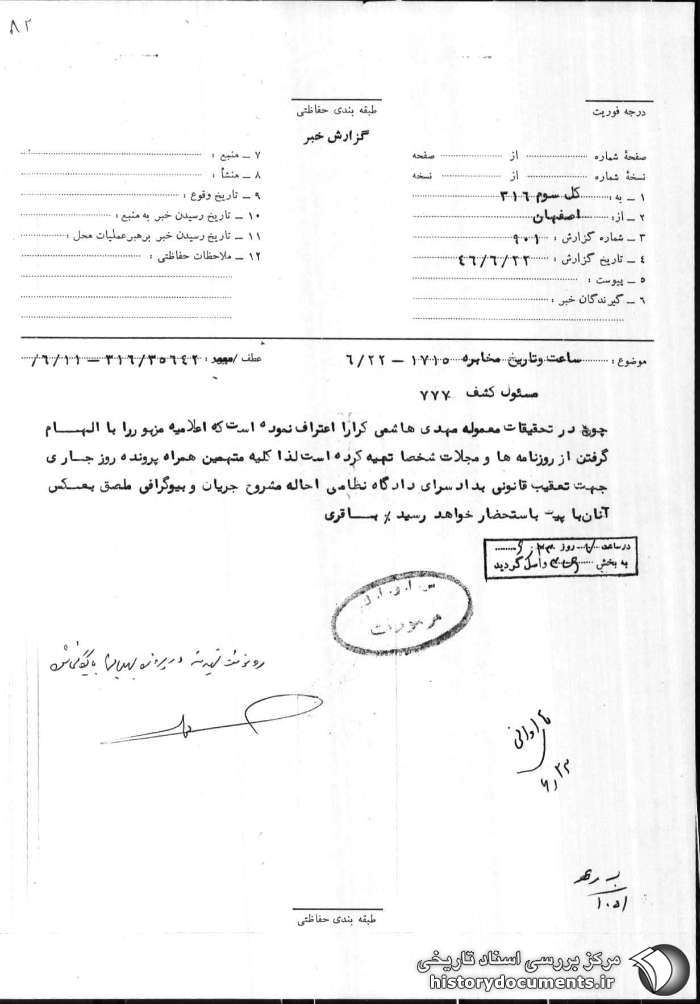 ۸۲
درجه فوریت
طبقه بندی حفاظتی
گزارش خبر
صفحهٔ شماره از صفحه
نسخهٔ شماره از نسخه
۱ ـ به: کل سوم ۳۱۶
۲ ـ از: اصفهان
۳ ـ شماره گزارش: ۹۰۱
۴ ـ تاریخ گزارش: ۴۶/۶/۲۲
۵ ـ پیوست:
۶ ـ گیرندگان خبر:
۷ ـ منبع:
۸ ـ منشأ:
۹ ـ تاریخ وقوع:
۱۰ ـ تاریخ رسیدن خبر به منبع:
۱۱ ـ تاریخ رسیدن خبر برهبر عملیات محل:
۱۲ ـ ملاحظات حفاظتی:
موضوع: ساعت و تاریخ مخابره ۱۷۱۵ – ۶/۲۲ عطف ۳۱۶/۳۵۶۴۲ – ۶/۱۱/
مسئول کشف ۷۷۷
چون در تحقیقات معموله مهدی هاشمی کرارا اعتراف نموده است که اعلامیه مزبور را با الهام
گرفتن از روزنامه ها و مجلات شخصا تهیه کرده است لذا کلیه متهمین همراه پرونده روز جاری
جهت تعقیب قانونی بدادسرای دادگاه نظامی احاله مشروح جریان و بیوگرافی ملصق بعکس
آنان با پیت باستحضار خواهد رسید٪ بساقری
در ساعت روز
به بخش واصل گردید
مرموزات
طبقه بندی حفاظتی
مرکز بررسی اسناد تاریخی
historydocuments.ir